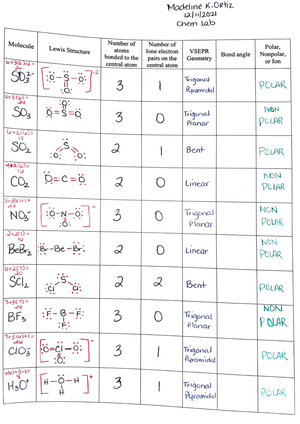 Madeline K. Ortiz
12/11/2021
Chem Lab
Molecule
Lewis Structure
Number of atoms bonded to the central atom
Number of lone electron pairs on the central atom
VSEPR Geometry
Bond angle
Polar, Nonpolar, or Ion
SO₃²⁻
O-S-O
O
-2
3
1
Trigonal Pyramidal
POLAR
SO₃
O
O=S=O
3
0
Trigonal Planar
NON POLAR
SO₂
S
O O
2
1
Bent
POLAR
CO₂
O=C=O
2
0
Linear
NON POLAR
NO₃⁻
O-N-O
O
-
3
0
Trigonal Planar
NON POLAR
BeBr₂
Br-Be-Br
2
0
Linear
NON POLAR
SCl₂
S
Cl Cl
2
2
Bent
POLAR
BF₃
F-B-F
F
3
0
Trigonal Planar
NON POLAR
ClO₃⁻
O-Cl-O
O
-
3
1
Trigonal Pyramidal
POLAR
H₃O⁺
H-O-H
H
+
3
1
Trigonal Pyramidal
POLAR